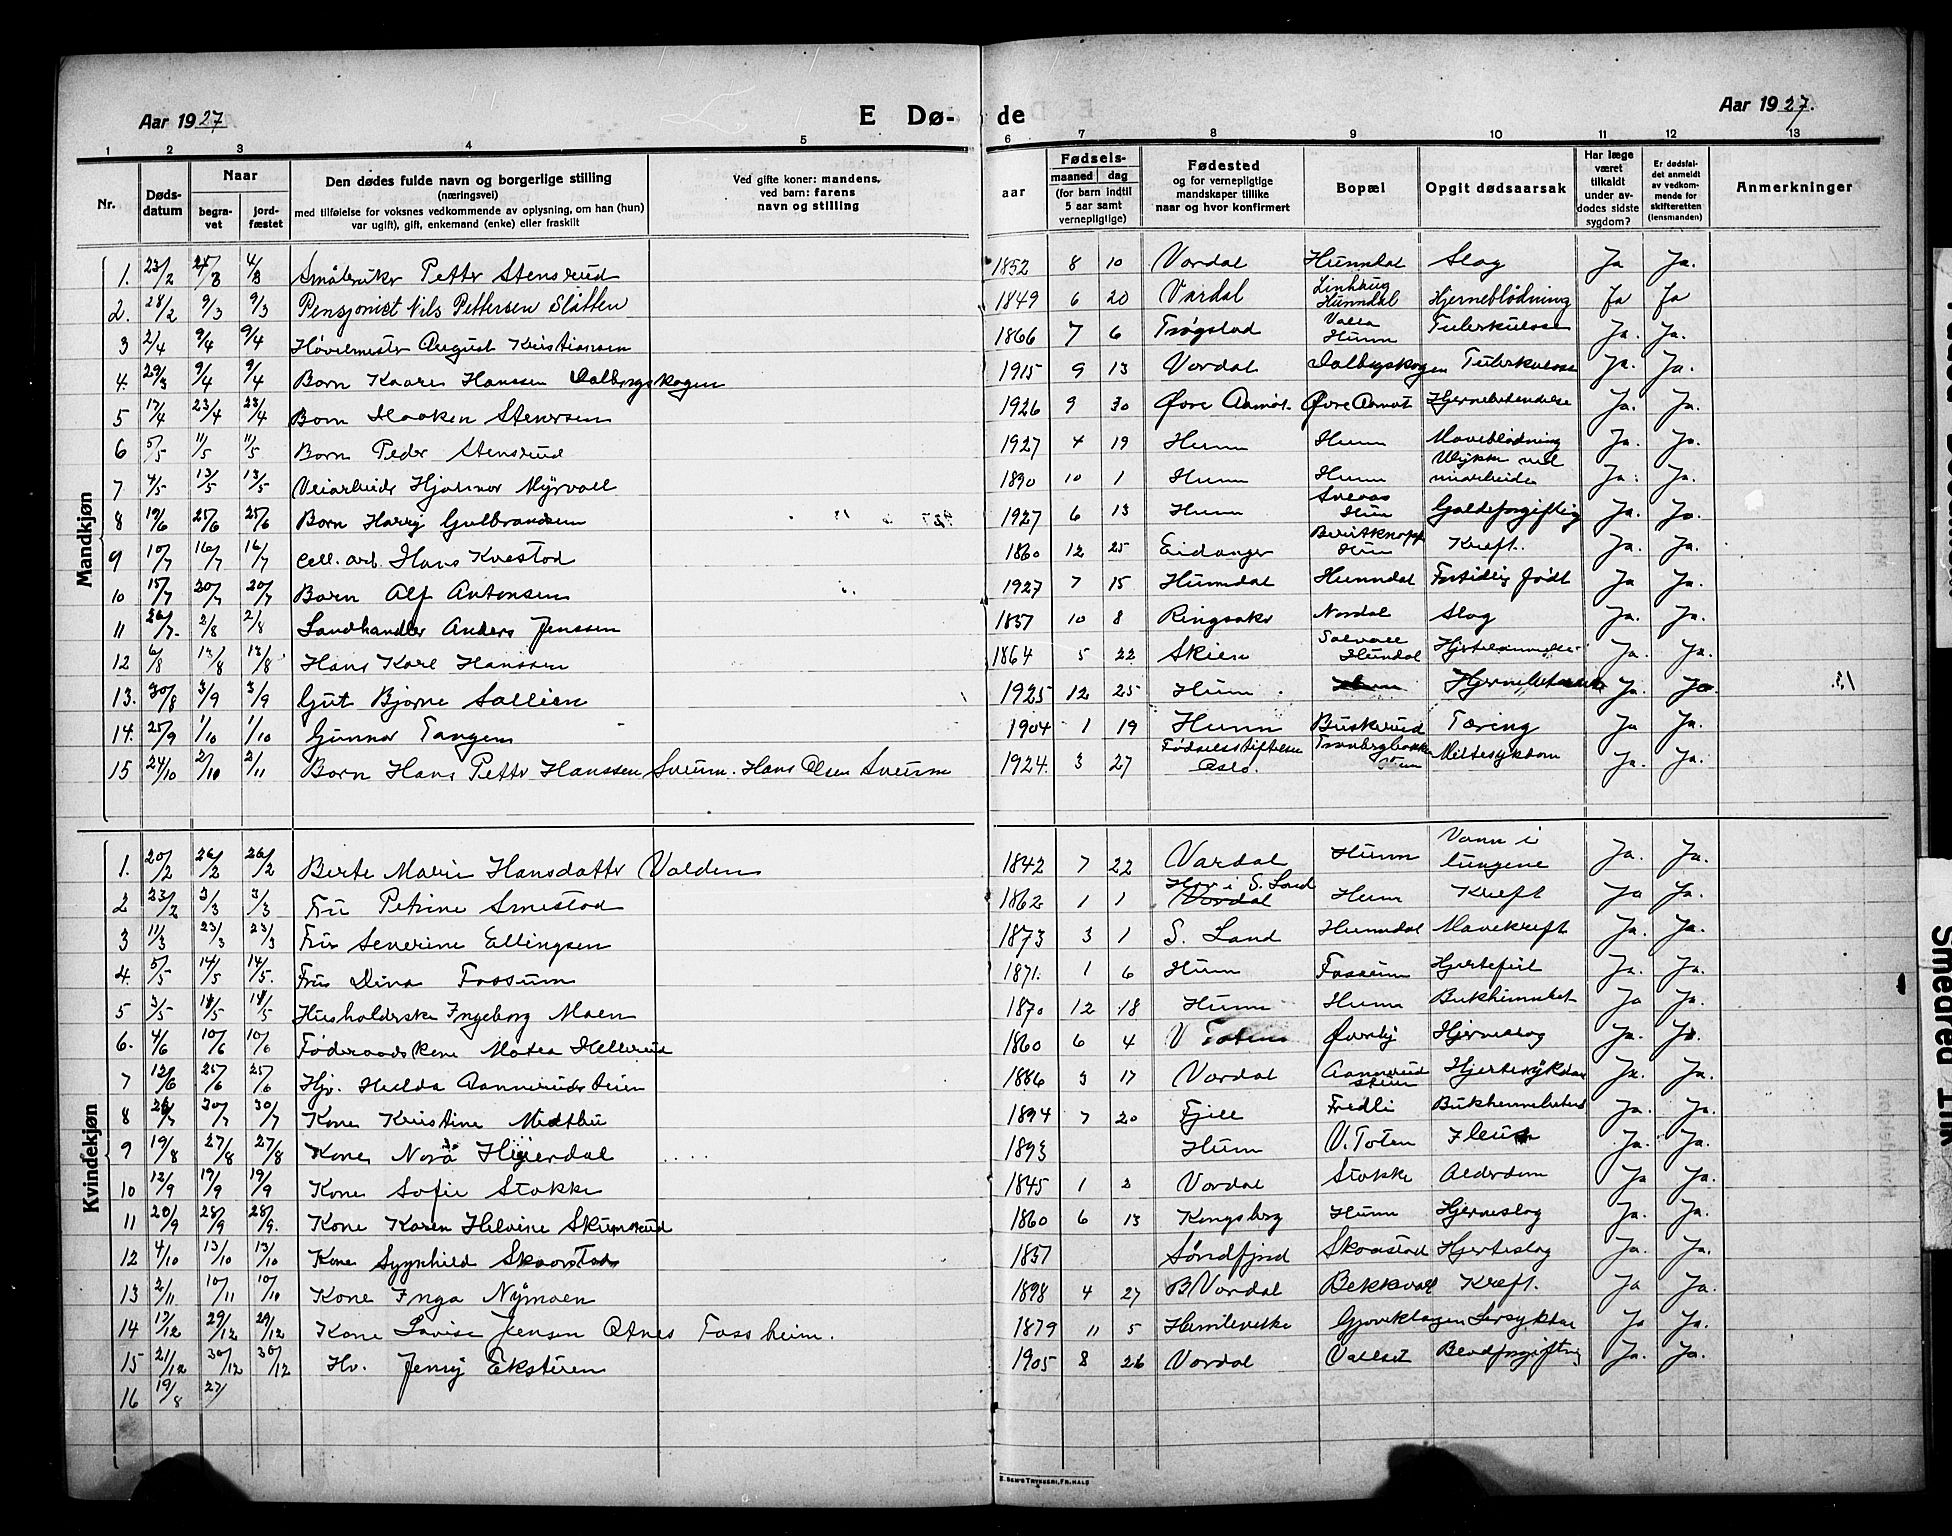 Aar 1927
E Dø-de
Aar 1927.
1 2 3 4 5 6 7 8 9 10 11 12 13
Nr. Døds-datum Naar begra-vet jord-fæstet
Den dødes fulde navn og borgerlige stilling
(næringsvei)
med tilføielse for voksnes vedkommende av oplysning, om han (hun)
var ugift), gift, enkemand (enke) eller fraskilt
Ved gifte koner: mandens,
ved barn: farens
navn og stilling
Fødsels-
aar maaned dag
(for barn indtil
5 aar samt
vernepligtige)
Fødested
og for vernepligtige
mandskaper tillike
naar og hvor konfirmert
Bopæl
Opgit dødsaarsak
Har læge
været
tilkaldt
under av-
dødes sidste
sygdom?
Er dødsfal-
det anmeldt
av vedkom-
mende for
skifteretten
(lensmanden)
Anmerkninger
Mandkjøn
1. 23/2 4/3 Småbruker Petter Stensrud 1852 8 10 Vardal Hunndal Slag Ja Ja.
2. 28/2 9/3 9/3 Pensjonist Nils Pettersen Slåtten 1849 6 20 Vardal Hunndal Hjerneblødning Ja Ja
3 2/4 9/4 9/4 Høvelmester August Kristiansen 1866 7 6 Trøgstad Hunn Tuberkulose Ja. Ja.
4. 29/3 9/4 9/4 Barn Kaare Hanssen Dalborgskogen 1915 9 13 Vardal Dalborgskogen Tuberkulose Ja. Ja.
5 17/4 23/4 23/4 Barn Haaken Stenersen 1926 9 30 Øvre Aamot. Øvre Aamot Hjernebetendelse Ja. Ja.
6 5/5 11/5 11/5 Barn Peder Stensrud 1927 4 19 Hunn Hunn Maveblødning Ja. Ja.
7 4/5 13/5 13/5 Veiarbeider Hjalmar Myrvoll 1890 10 1 Hunn Hunn Ulykke ved Ja. Ja.
8 19/6 25/6 25/6 Barn Harry Gulbrandsen 1927 6 13 Hunn Hun Galdeforgiftning Ja. Ja.
9 10/7 16/7 16/7 Cell. arb. Hans Kvestad 1860 12 25 Eidanger Hun Kreft. Ja. Ja.
10 15/7 20/7 20/7 Barn Alf Antonsen 1927 7 15 Hunndal Hunndal Fortidlig født Ja Ja.
11 26/7. 2/8 2/8 Landhandler Anders Jenssen 1857 10 8 Ringsaker Nordal Slag Ja. Ja.
12 6/8 13/8 13/8 Hans Karl Hanssen 1864 5 22 Skien Solvoll Hundal Ja. Ja.
13. 30/8 3/9 3/9 Gut Bjarne Sollien 1925 12 25 Hunn. Hunn Ja. Ja.
14. 25/9 1/10 1/10 Gunnar Tangen 1904 1 19 Hunn Buskerud Tæring Ja Ja.
15 24/10 2/10 2/11 Barn Hans Petter Hanssen Sveum. Hans Olsen Sveum 1924. 3 27 Fødselsstiftelsen Oslo. Miltesykdom Ja. Ja.
Kvindekjøn
1. 20/2 26/2 26/2 Berte Marie Hansdatter Valden 1842 7 22 Vardal Hunn Vann i lungene Ja. Ja.
2 23/2 3/3 3/3 Fru Petrine Smestad 1862 1 1 Vardal S. Land Hunn Kreft Ja Ja.
3 11/3 23/3 23/3 Fru Severine Ellingsen 1873 3 1 S. Land Hunndal Mavekreft Ja. Ja.
4. 5/5 14/5 14/5. Fru Dina Fossum 1871. 1 6 Hunn Fossum Hjertefeil Ja. Ja.
5 3/5 14/5 14/5 Husholderske Ingeborg Moen 1870 12 18 Hunn Hunn Ja Ja.
6. 4/6 10/6 10/6 Føderaadskone Matea Hellerud 1860 6 4 V Toten Øverby Hjerneslag Ja. Ja.
7 12/6 25/6 25/6 Hjv. Hulda Aannerudsteien 1886 3 17 Vardal Aannerud steien Hjertesykdom Ja. Ja.
8 30/7 30/7 Kone Kristine Midtbu 1894 7 20 Fredli Ja. Ja.
9 19/8 27/8 27/8 Kone Nora Heierdal 1893 Hunn V. Toten Ja. Ja.
10 12/9 19/9 19/9 Kone Sofie Stokke 1845 1 2 Vardal Stokke Alderdom Ja Ja
11 20/9 28/9 28/9. Kone Karen Helvine Skumsrud 1860 6 13 Kongsberg Hunn Hjerneslag Ja. Ja.
12 4/10 13/10 13/10 Kone Synnhild Skaarstad 1857 Søndfjord Skaarstad Hjerteslag Ja. Ja.
13 2/11 10/11 10/10 Kone Inga Nymoen 1898 4 27 Vardal Bekkvoll Kreft. Ja Ja.
14 13/12 29/12 29/12 Kone Lovise Jensen Otnes Fossheim. 1879 11 5 Ja Ja.
15 21/12 30/12 30/12 Hv. Jenny Eksteren 1905 8 26 Vardal Vallset Blodforgiftning Ja. Ja.
16 19/8 27/